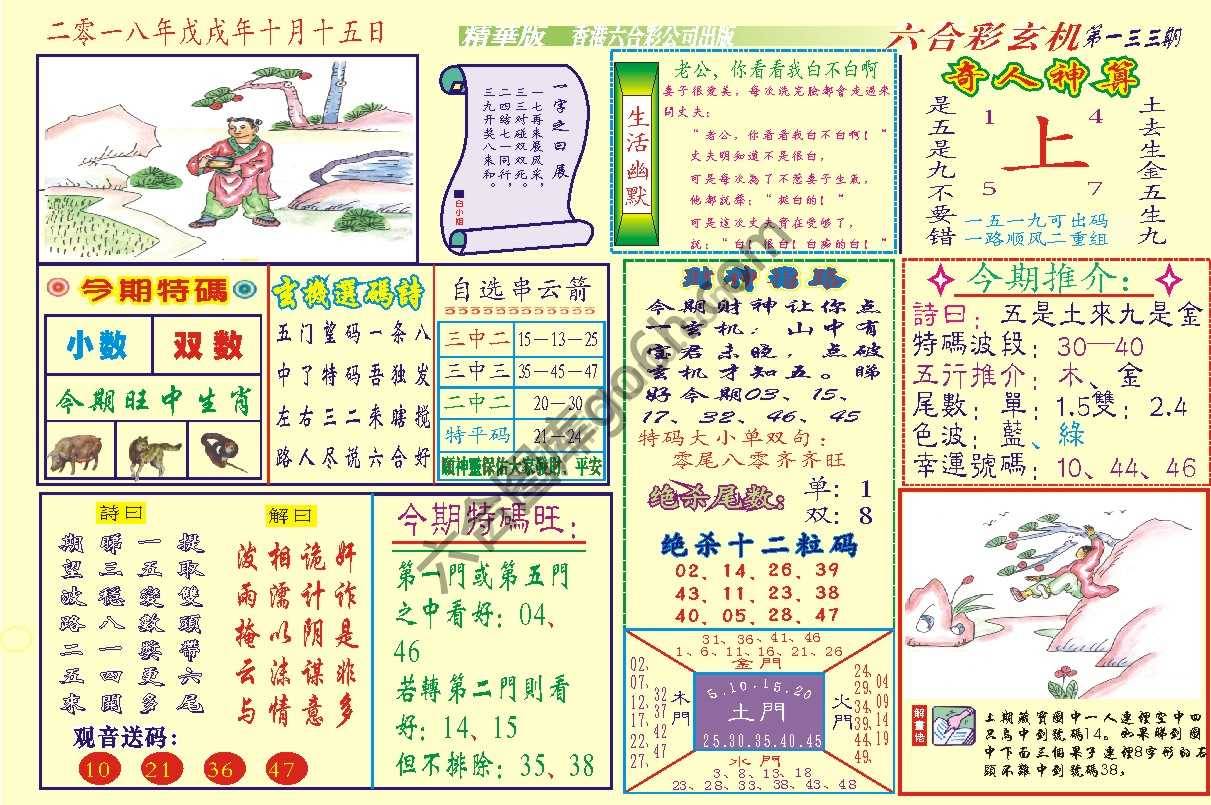 二零一八年戊戌年十月十五日
精華版 香港六合彩公司出版
六合彩玄机第一三三期
一字之曰展
一七再来展风采，
三三对碰双双死。
二四瞎七八同行，
三九开奖一双来和。
白小姐
生活幽默
老公，你看看我白不白啊
妻子很愛美，每次洗完臉都會走過來
問丈夫：
“老公，你看看我白不白啊！”
丈夫明知道不是很白，
可是每次為了不惹妻子生氣，
他都說聲：“挺白的！”
可是這次丈夫實在受够了，
說：“白！很白！白痴的白！”
奇人神算
是五是九不要错
1 4
上
5 7
土去生金五生九
一五一九可出码
一路顺风二重组
今期特碼
小数 双数
今期旺中生肖
玄機選碼詩
五门望码一条八
中了特码吾独发
左右三二来瞎搅
路人尽说六合好
自选串云箭
三中二 15—13—25
三中三 35—45—47
二中二 20—30
特平码 21—24
願神靈保佑大家發財、平安
财神
今期财神让你点
一玄机：山中有
宝君未晓，点破
玄机才知五。睇
好今期03、15、
17、32、46、45
特码大小单双句：
零尾八零齐齐旺
绝杀尾数：
单：1
双：8
绝杀十二粒码
02、14、26、39
43、11、23、38
40、05、28、47
今期推介：
詩曰：五是土來九是金
特碼波段：30—40
五行推介：木、金
尾數：單：1.5雙：2.4
色波：藍、綠
幸運號碼：10、44、46
詩曰
期睇一提
望三五取
波穩變雙
路八數頭
二一獎帶
五四更六
來開多尾
解曰
波相诡奸
雨濡计诈
掩以阴是
云沫谋非
与情意多
观音送码：
10 21 36 47
今期特碼旺：
第一門或第五門
之中看好：04、
46
若轉第二門則看
好：14、15
但不排除：35、38
31、36、41、46
1、6、11、16、21、26
金門
02、07、12、17、22、27、
32、37、42、47
木門
5.10.15.20
土門
25.30.35.40.45
火門
24、29、34、39、44、49、
04、09、14、19
水門
3、8、13、18
23、28、33、38、43、48
解畫悟
上期藏寶圖中一人連裡空中四
只鳥中到號碼14。如果睇到圖
中下面三個果子連裡8字形的石
頭不難中到號碼38，
六合图库go66h.com